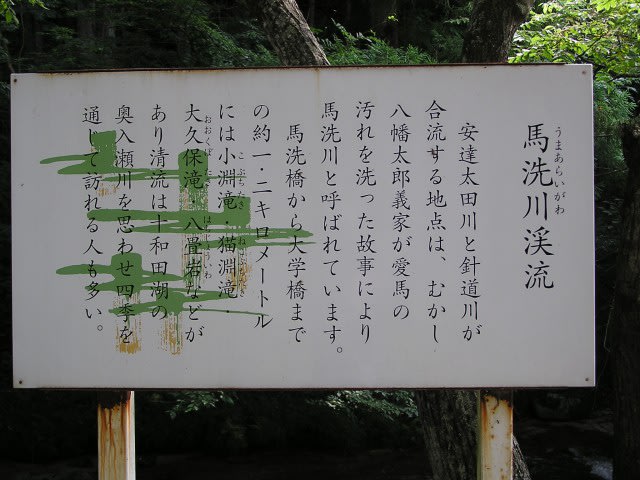 馬洗川渓流
うまあらいがわ
安達太田川と針道川が
合流する地点は、むかし
八幡太郎義家が愛馬の
汚れを洗った故事により
馬洗川と呼ばれています。
馬洗橋から大学橋まで
の約一・二キロメートル
には小淵滝・猫淵滝・
大久保滝、八畳岩などが
あり清流は十和田湖の
奥入瀬川を思わせ四季を
通じて訪れる人も多い。